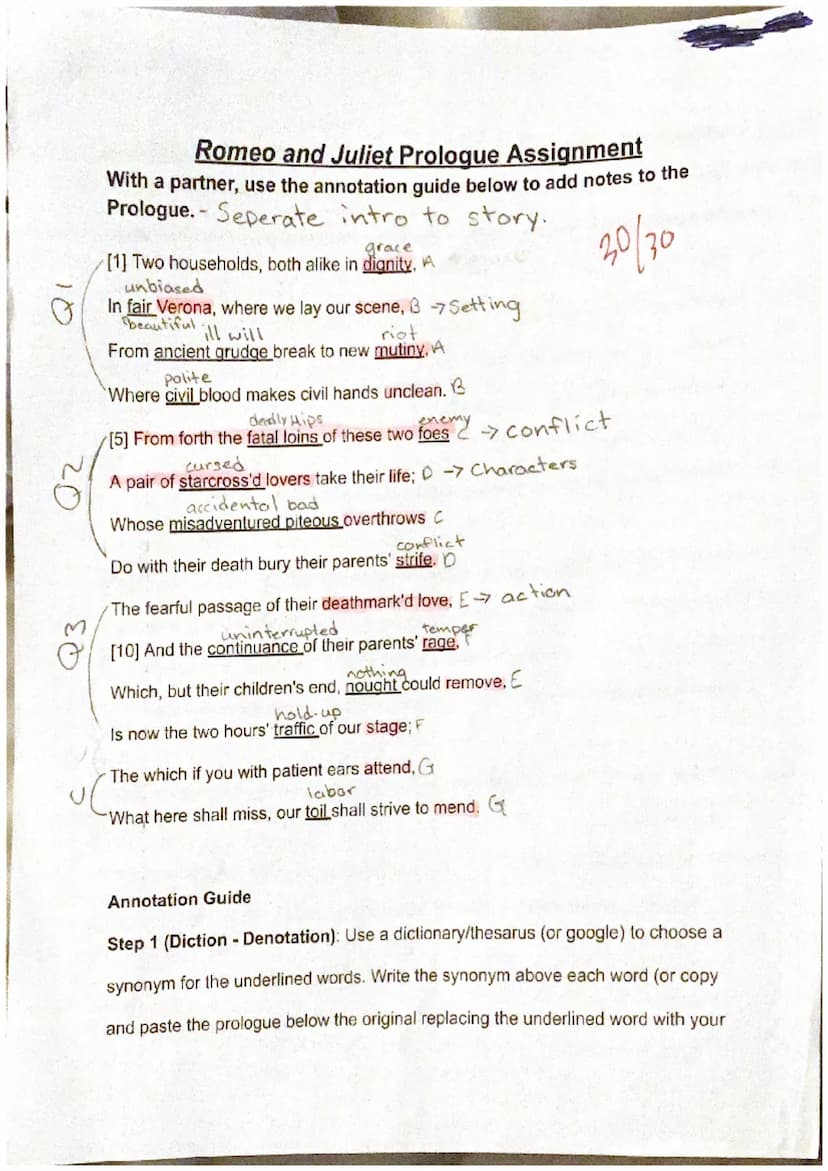 Romeo and Juliet Prologue Assignment
With a partner, use the annotation guide below to add notes to the
Prologue. - Seperate intro to story.
30/30
grace
[1] Two households, both alike in dignity, A
unbiased
Q1
In fair Verona, where we lay our scene, B → Setting
beautiful ill will riot
From ancient grudge break to new mutiny, A
polite
Where civil blood makes civil hands unclean. B
deadly Hips enemy
[5] From forth the fatal loins of these two foes C → conflict
cursed
Q2
A pair of starcross'd lovers take their life; D → Characters
accidental bad
Whose misadventured piteous overthrows C
conflict
Do with their death bury their parents' strife. D
The fearful passage of their deathmark'd love, E → action
uninterrupted temper
Q3
[10] And the continuance of their parents' rage, F
nothing
Which, but their children's end, nought could remove, E
hold-up
Is now the two hours' traffic of our stage; F
The which if you with patient ears attend, G
labor
What here shall miss, our toil shall strive to mend. G
Annotation Guide
Step 1 (Diction - Denotation): Use a dictionary/thesarus (or google) to choose a
synonym for the underlined words. Write the synonym above each word (or copy
and paste the prologue below the original replacing the underlined word with your